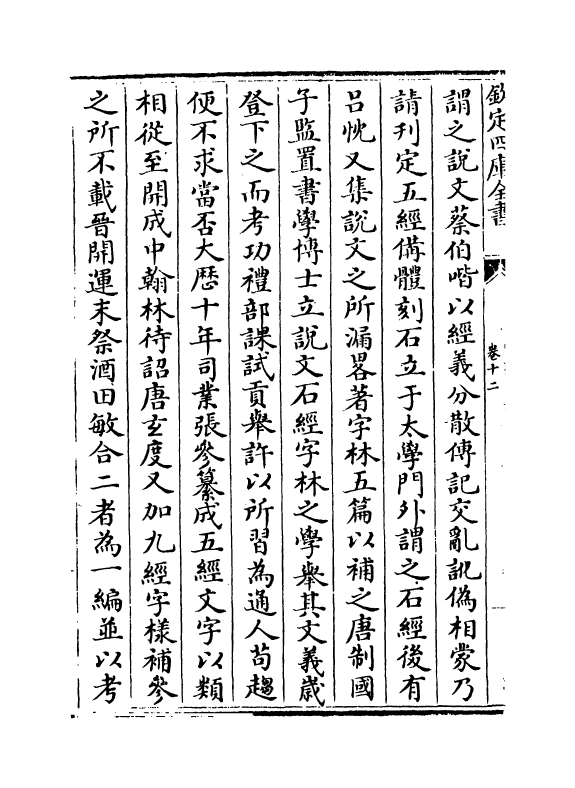 欽定四庫全書
卷十二
謂之說文蔡伯喈以經義分散傳記交亂訛偽相蒙乃
請刊定五經備體刻石立于太學門外謂之石經後有
呂忱又集說文之所漏畧著字林五篇以補之唐制國
子監置書學博士立說文石經字林之學舉其文義歲
登下之而考功禮部課試貢舉許以所習為通人苟趨
便不求當否大歷十年司業張參纂成五經文字以類
相從至開成中翰林待詔唐玄度又加九經字樣補參
之所不載晉開運末祭酒田敏合二者為一編並以考